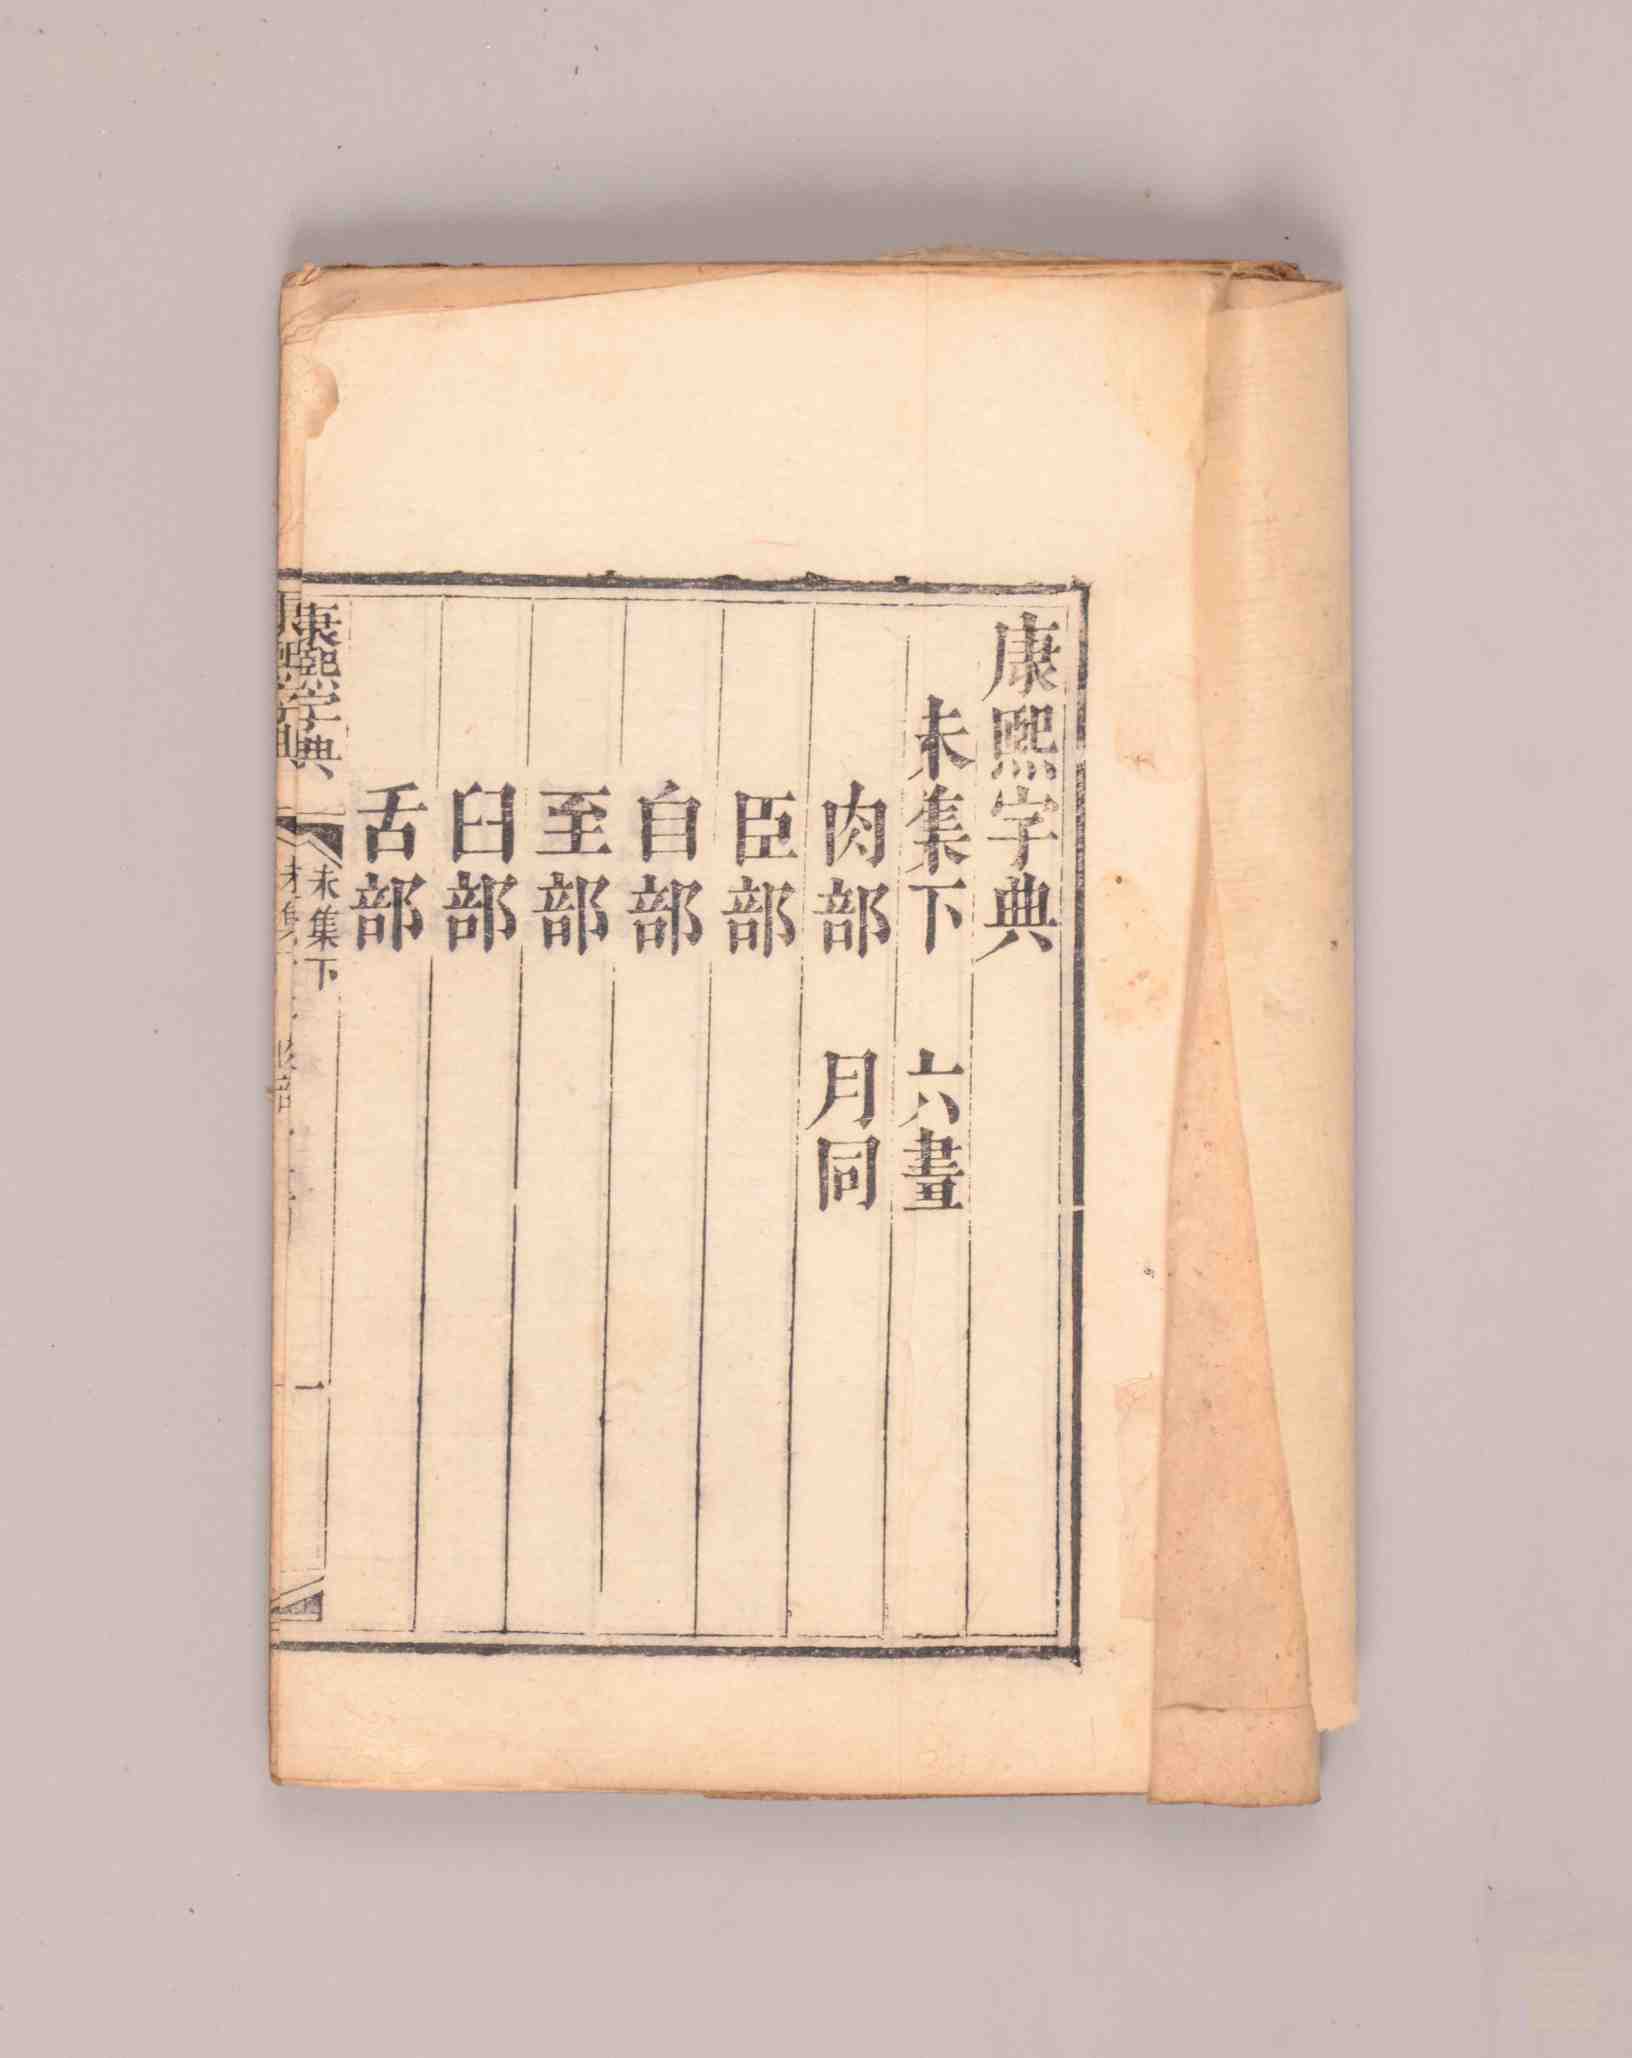 康熙字典
未集下　六畫
肉部　月同
臣部
自部
至部
臼部
舌部
康熙字典　未集下　一